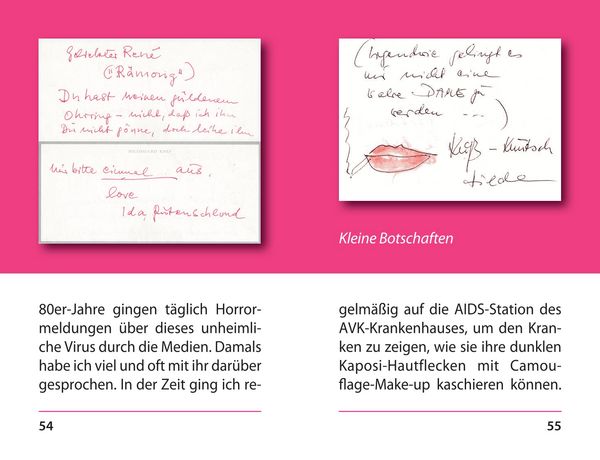 Geliebter René
("Rämong")
Du hast meinen güldenen
Ohrring – nicht, daß ich ihn
Dir nicht gönne, doch leihe ihn
HILDEGARD KNEF
mir bitte einmal aus,
love
Ida
(Irgendwie gelingt es
mir nicht eine
DAME zu
werden ...)
Küß – Knutsch
Kleine Botschaften
80er-Jahre gingen täglich Horror-
meldungen über dieses unheimli-
che Virus durch die Medien. Damals
habe ich viel und oft mit ihr darüber
gesprochen. In der Zeit ging ich re-
54
gelmäßig auf die AIDS-Station des
AVK-Krankenhauses, um den Kran-
ken zu zeigen, wie sie ihre dunklen
Kaposi-Hautflecken mit Camou-
flage-Make-up kaschieren können.
55